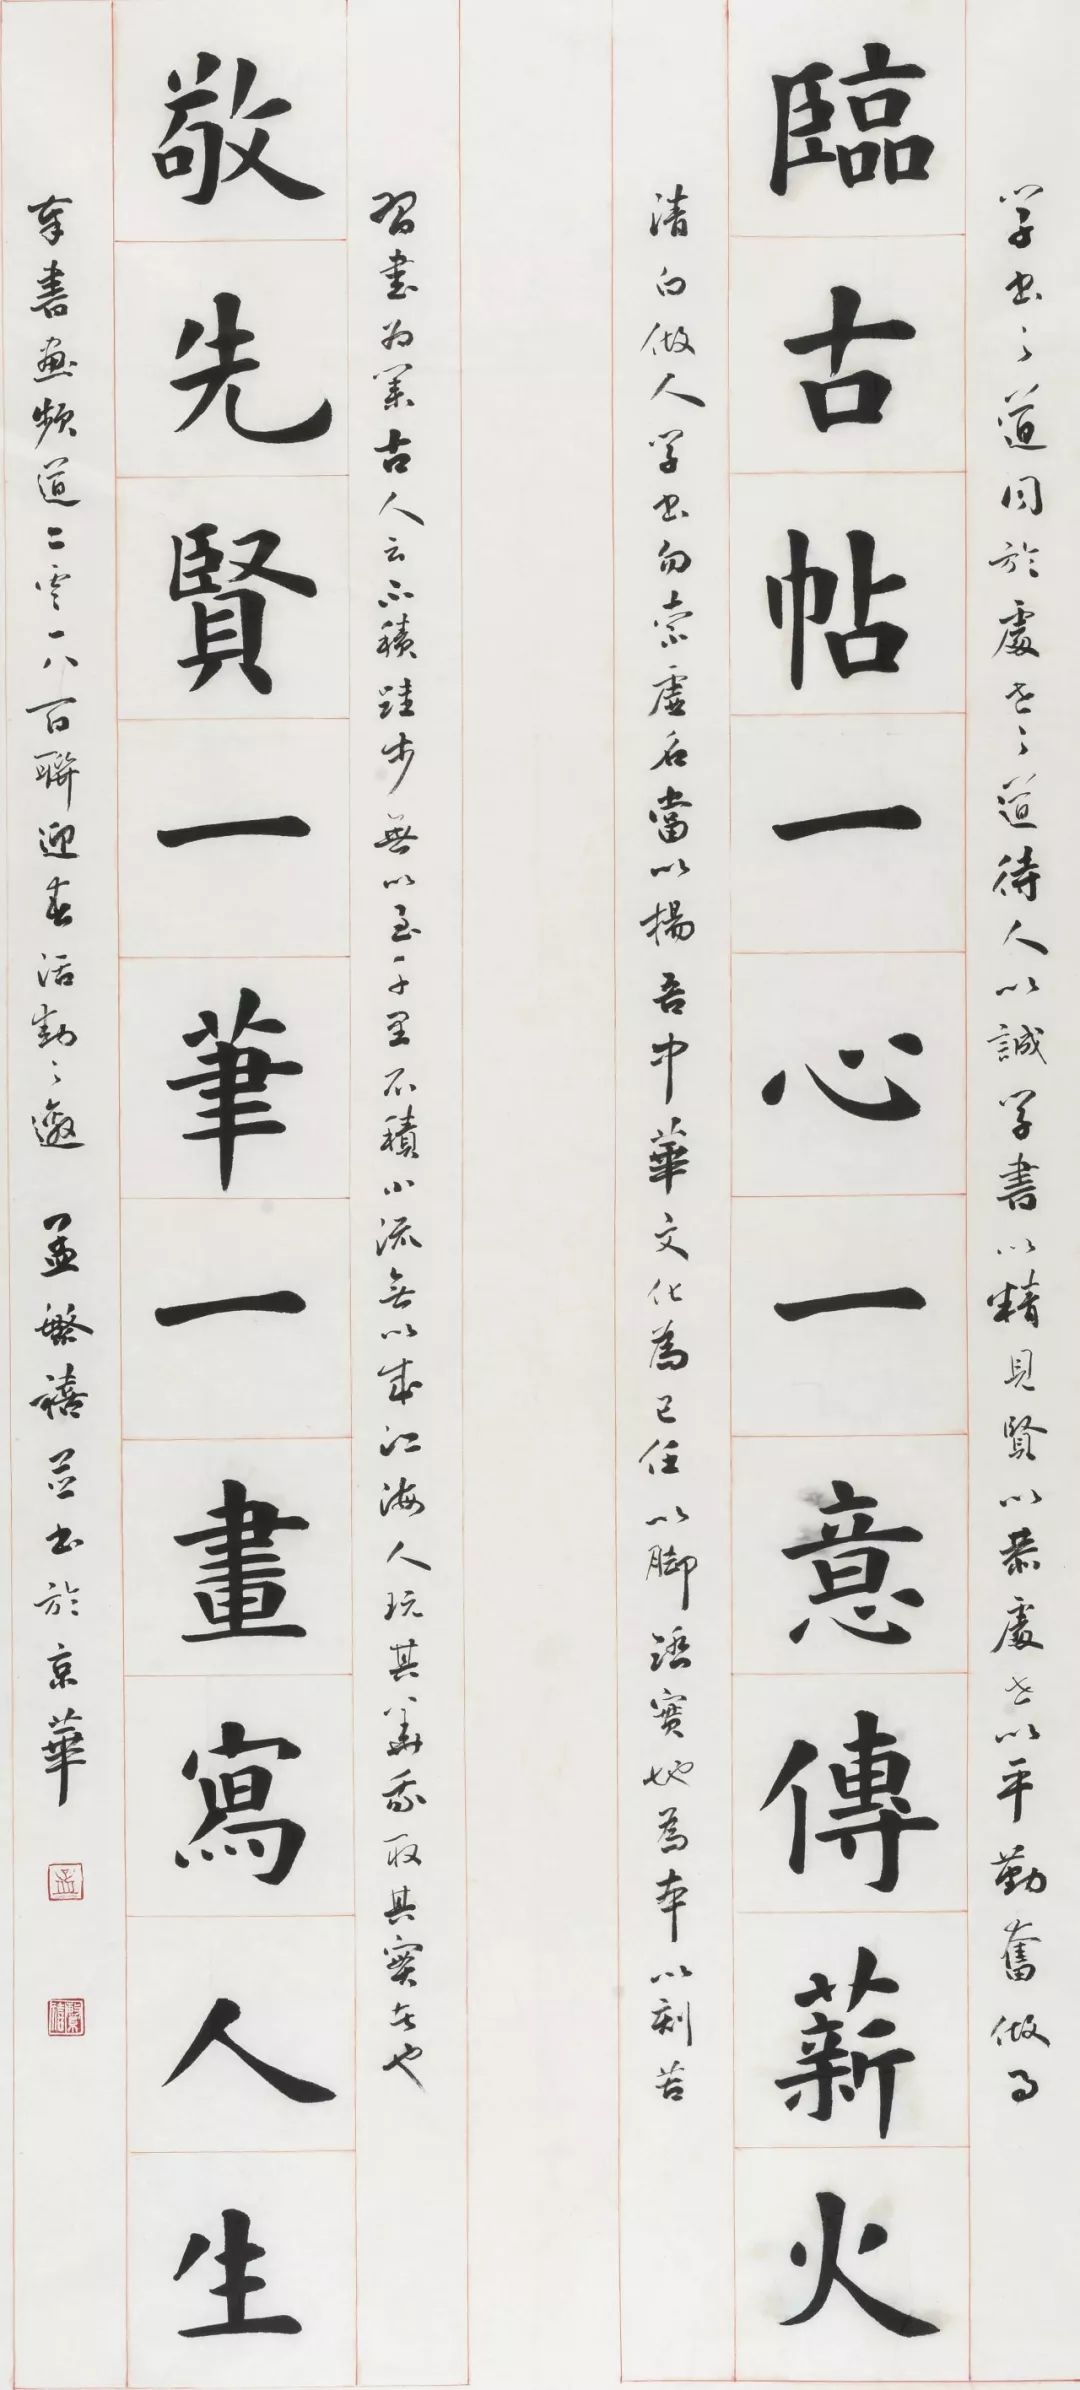 学书之道同於處世之道待人以誠学書以精見賢以恭處世以平勤奮做事
臨古帖一心一意傳薪火
清白做人学书勿索虛名當以揚吾中華文化為己任以脚踏實地為本以刻苦
習書为業古人云不積跬步無以至千里不積小流無以成江海人玩其華我取其實者也
敬先賢一筆一畫寫人生
奉書画頻道二零一八百聯迎春活動之邀 孟繁禧並书於京華
孟